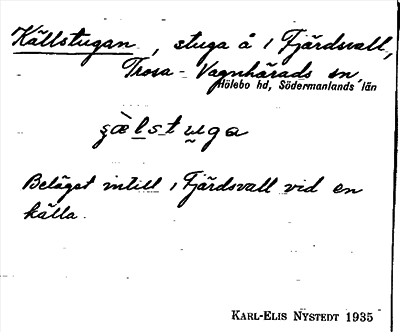 Källstugan, stuga å 1 Fjärdsvall,
Trosa-Vagnhärads sn,
Hölebo hd, Södermanlands län
Beläget intill 1 Fjärdsvall vid en
källa.
KARL-ELIS NYSTEDT 1935